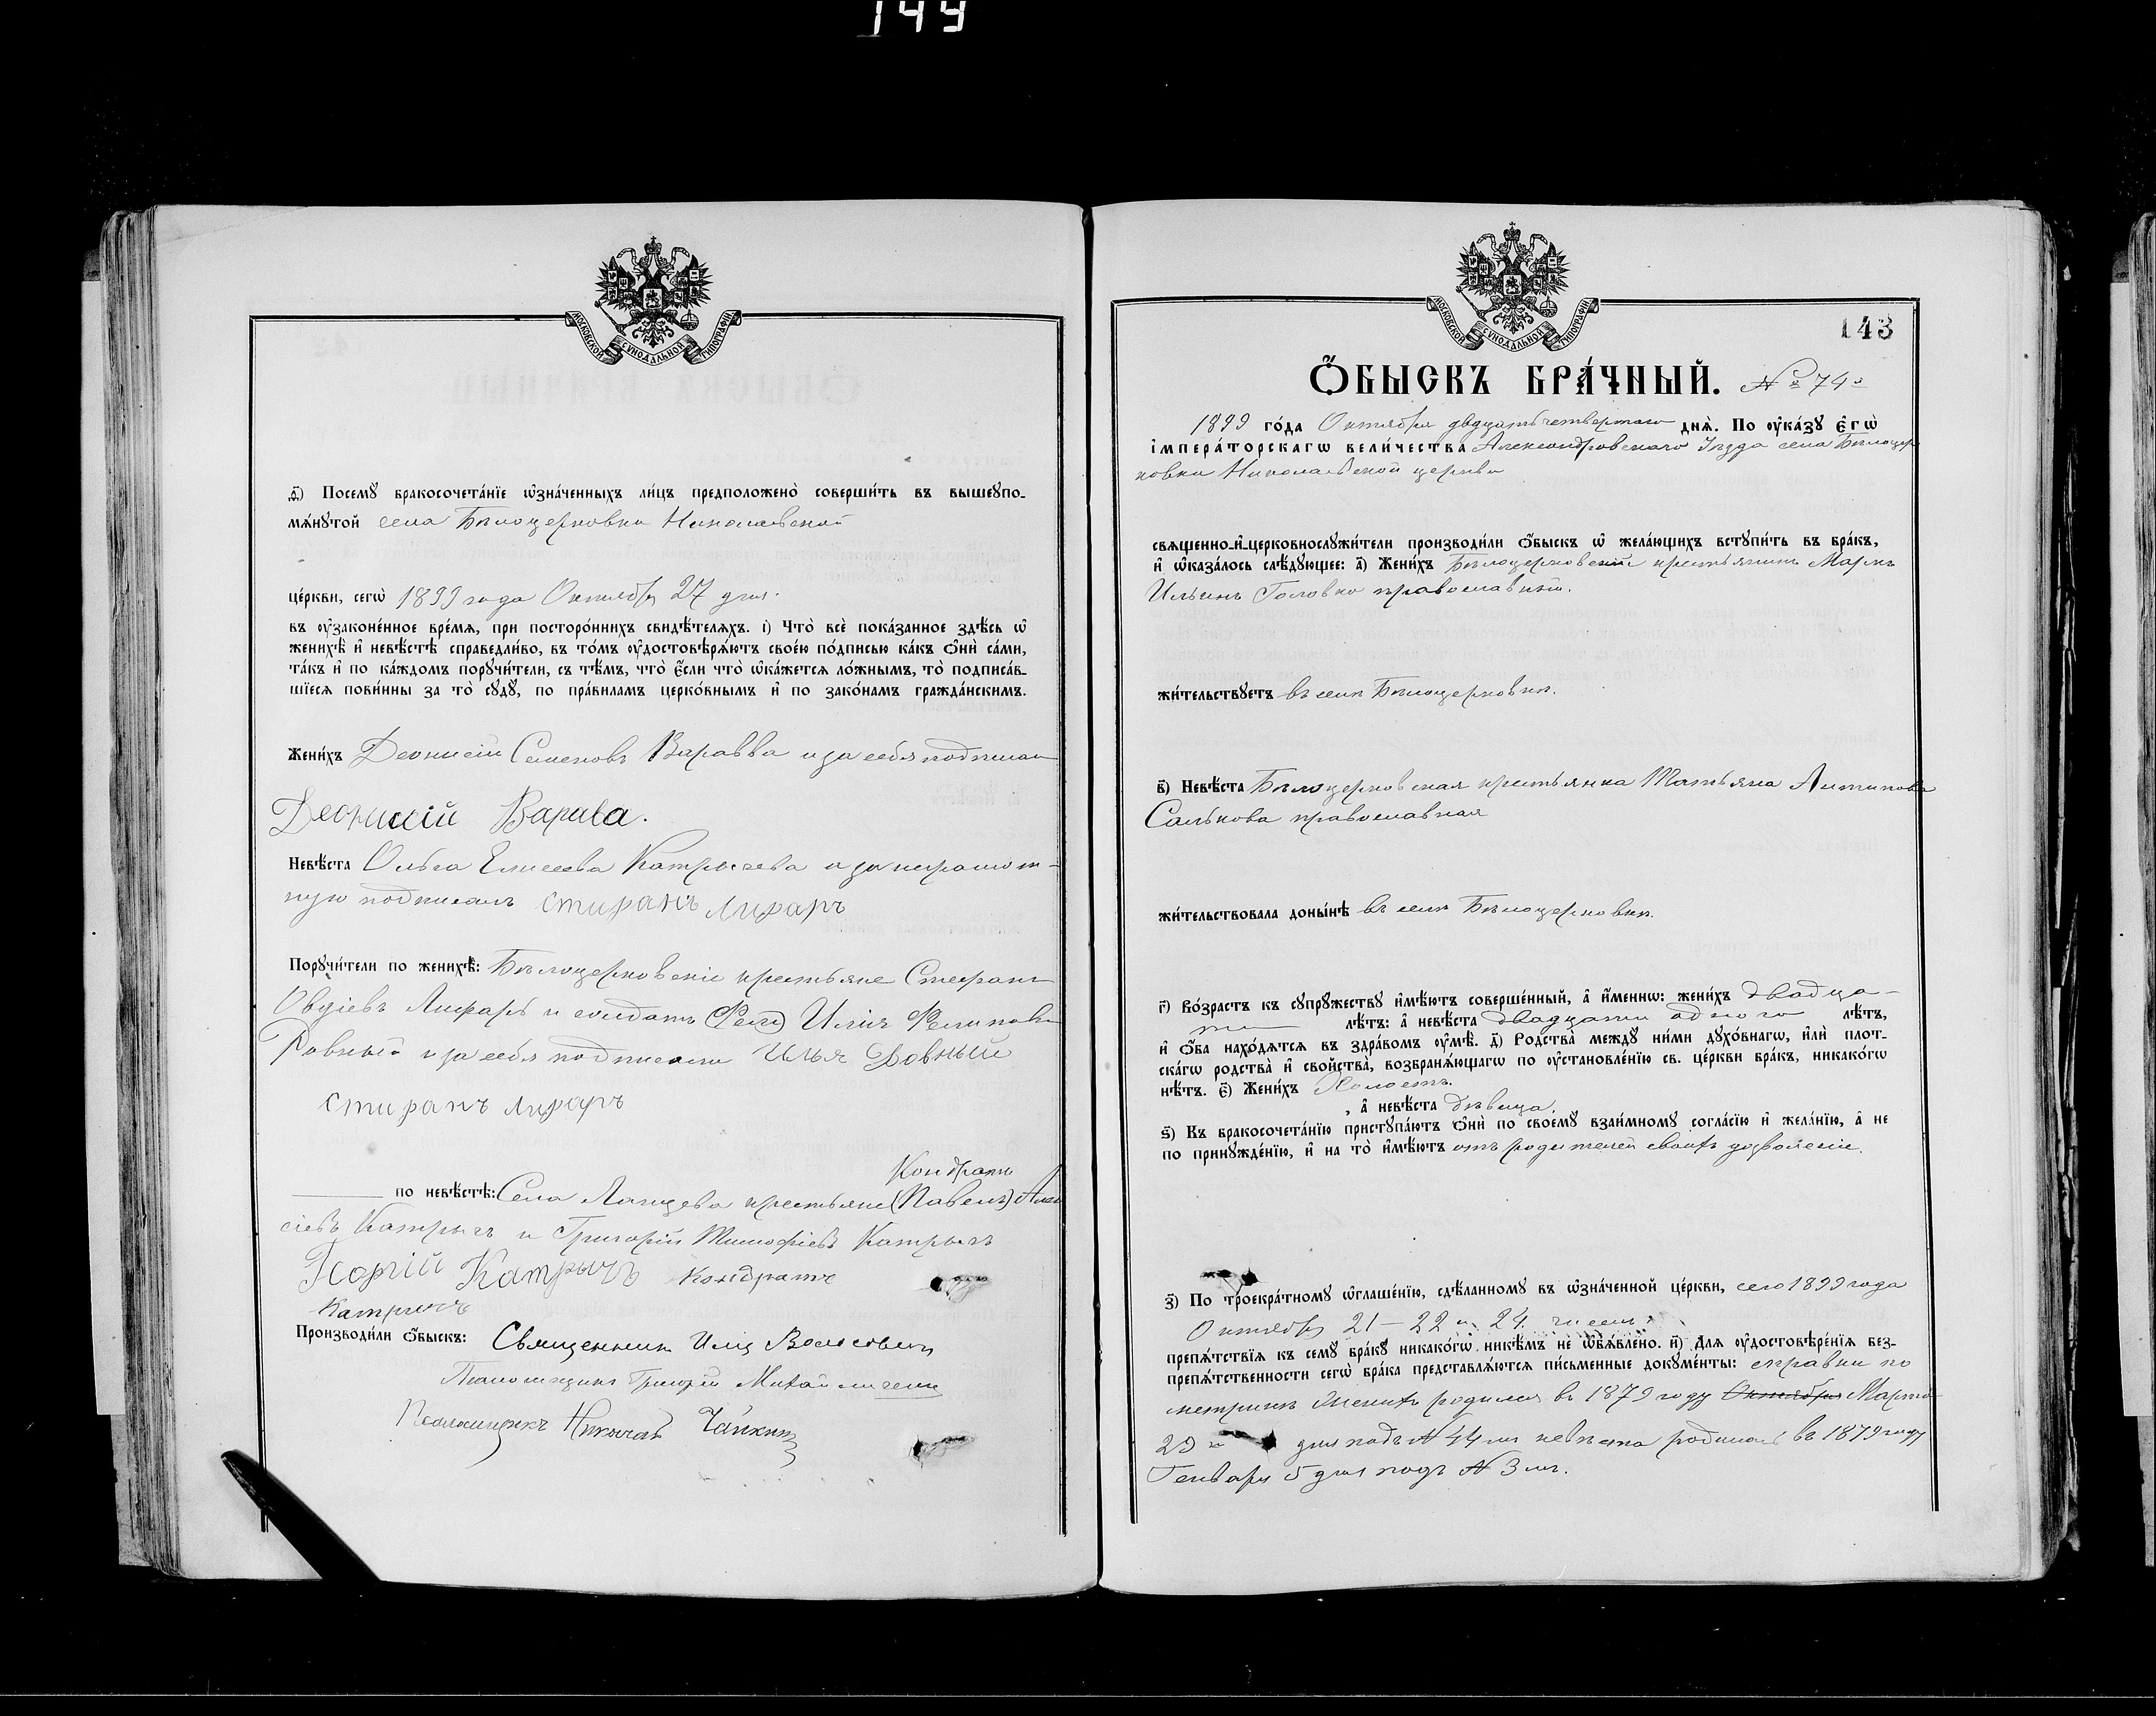 149
МОСКОВСКОЙ СУНОДАЛЬНОЙ ТИПОГРАФІИ
Посемꙋ бракосочета́нїе ѡ҆зна́ченныхъ ли́цъ предположено̀ соверши́ть въ вышеꙋпо-
мѧ́нꙋтой села Бѣлоцерковки Николаевской
це́ркви, сегѡ̀ 1899 года Октября 27 дня.
въ ᲂу҆законе́нное вре́мѧ, при посторо́ннихъ свидѣ́телѧхъ. і҃) Что̀ всѐ пока́занное здѣ́сь ѡ҆
женихѣ̀ и҆ невѣ́стѣ справедли́во, въ то́мъ ᲂу҆достовѣрѧ́ютъ свое́ю по́дписью ка́къ ѻ҆нѝ са́ми,
та́къ и҆ по ка́ждомъ порꙋчи́тели, съ тѣ́мъ, что̀ є҆́сли что̀ ѡ҆ка́жетсѧ ло́жнымъ, то̀ подписа́в-
шїесѧ пови́нны за то̀ сꙋдꙋ̀, по пра́виламъ церко́внымъ и҆ по зако́намъ гражда́нскимъ.
Жени́хъ Деонисій Семеновъ Варавва и за себя подписал
Деонисій Варава.
Невѣ́ста Ольга Елисеева Катрычева а за неграмот-
ную подписалъ Стиранъ Лираръ
Порꙋчи́тели по женихѣ̀: Бѣлоцерковскіе крестьяне Стефанъ
Овдіевъ Лифарь и солдатъ Илія Филипповъ
Ровный и за себя подписали Илья Ровный
Стиранъ Лираръ
Кондратъ
по невѣ́стѣ: Села крестьяне (Павелъ)
сіевъ Катрычъ и Григорій Тимофіевъ Катрычъ
Катрычъ Кондратъ
Катричъ
Производи́ли ѻ҆́быскъ: Священникъ Илія
Григорій Михайличенко
Псаломщикъ Николай Чайкинъ
МОСКОВСКОЙ СУНОДАЛЬНОЙ ТИПОГРАФІИ
143
Ѻ҆́быскъ бра́чный. № 74й
1899 го́да Октября двадцать четвертаго днѧ̀. По ᲂу҆ка́зꙋ є҆гѡ̀
і҆мпера́торскагѡ вели́чества Александровскаго Уѣзда села Бѣлоцер
ковки Николаевской церкви
свѧщенно-и҆-церковнослꙋжи́тели производи́ли ѻ҆́быскъ ѡ҆ жела́ющихъ встꙋпи́ть въ бра́къ,
и҆ ѡ҆каза́лось слѣ́дꙋющее: а҃) Жени́хъ Бѣлоцерковскій крестьянинъ Маркъ
Ильинъ Головко православный.
жи́тельствꙋетъ въ селѣ Бѣлоцерковкѣ.
в҃) Невѣ́ста Бѣлоцерковская крестьянка Татьяна Антипова
Салькова православная
жи́тельствовала доны́нѣ въ селѣ Бѣлоцерковкѣ.
г҃) Во́зрастъ къ сꙋпрꙋ́жествꙋ и҆мѣ́ютъ соверше́нный, а҆ и҆́меннѡ: жени́хъ двадца-
ти лѣ́тъ: а҆ невѣ́ста двадцати одного лѣ́тъ,
и҆ ѻ҆́ба нахо́дѧтсѧ въ здра́вомъ ᲂу҆мѣ̀. д҃) Родства̀ междꙋ̀ ни́ми дꙋхо́внагѡ, и҆лѝ плот-
ска́гѡ родства̀ и҆ сво́йства̀, возбранѧ́ющагѡ по ᲂу҆становле́нїю св. це́ркви бра́къ, никако́гѡ
нѣ́тъ. є҃) Жени́хъ Холостъ.
, а҆ невѣ́ста дѣвица.
ѕ҃) Къ бракосочета́нїю пристꙋпа́ютъ ѻ҆нѝ по своемꙋ̀ взаи́мномꙋ согла́сїю и҆ жела́нїю, а҆ не
по принꙋжде́нїю, и҆ на то̀ и҆мѣ́ютъ отъ родителей своихъ дозволеніе.
з҃) По троекра́тномꙋ ѡ҆глаше́нїю, сдѣ́ланномꙋ въ ѡ҆зна́ченной це́ркви, сего 1899 года
Октября 21 — 22 и 24 чиселъ
препѧ́тствїѧ къ семꙋ̀ бра́кꙋ никако́гѡ никѣ́мъ не ѡ҆бѧ́влено. и҃) Длѧ ᲂу҆достовѣре́нїѧ без-
препѧ́тственности сегѡ̀ бра́ка представлѧ́ютсѧ пи́сьменные докꙋме́нты: справки по
метрикѣ Женихъ родился въ 1879 году Октября Марта
29 дня подъ № 44 мъ невѣста родилась въ 1879 году
Генваря 5 дня подъ № 3 мъ.